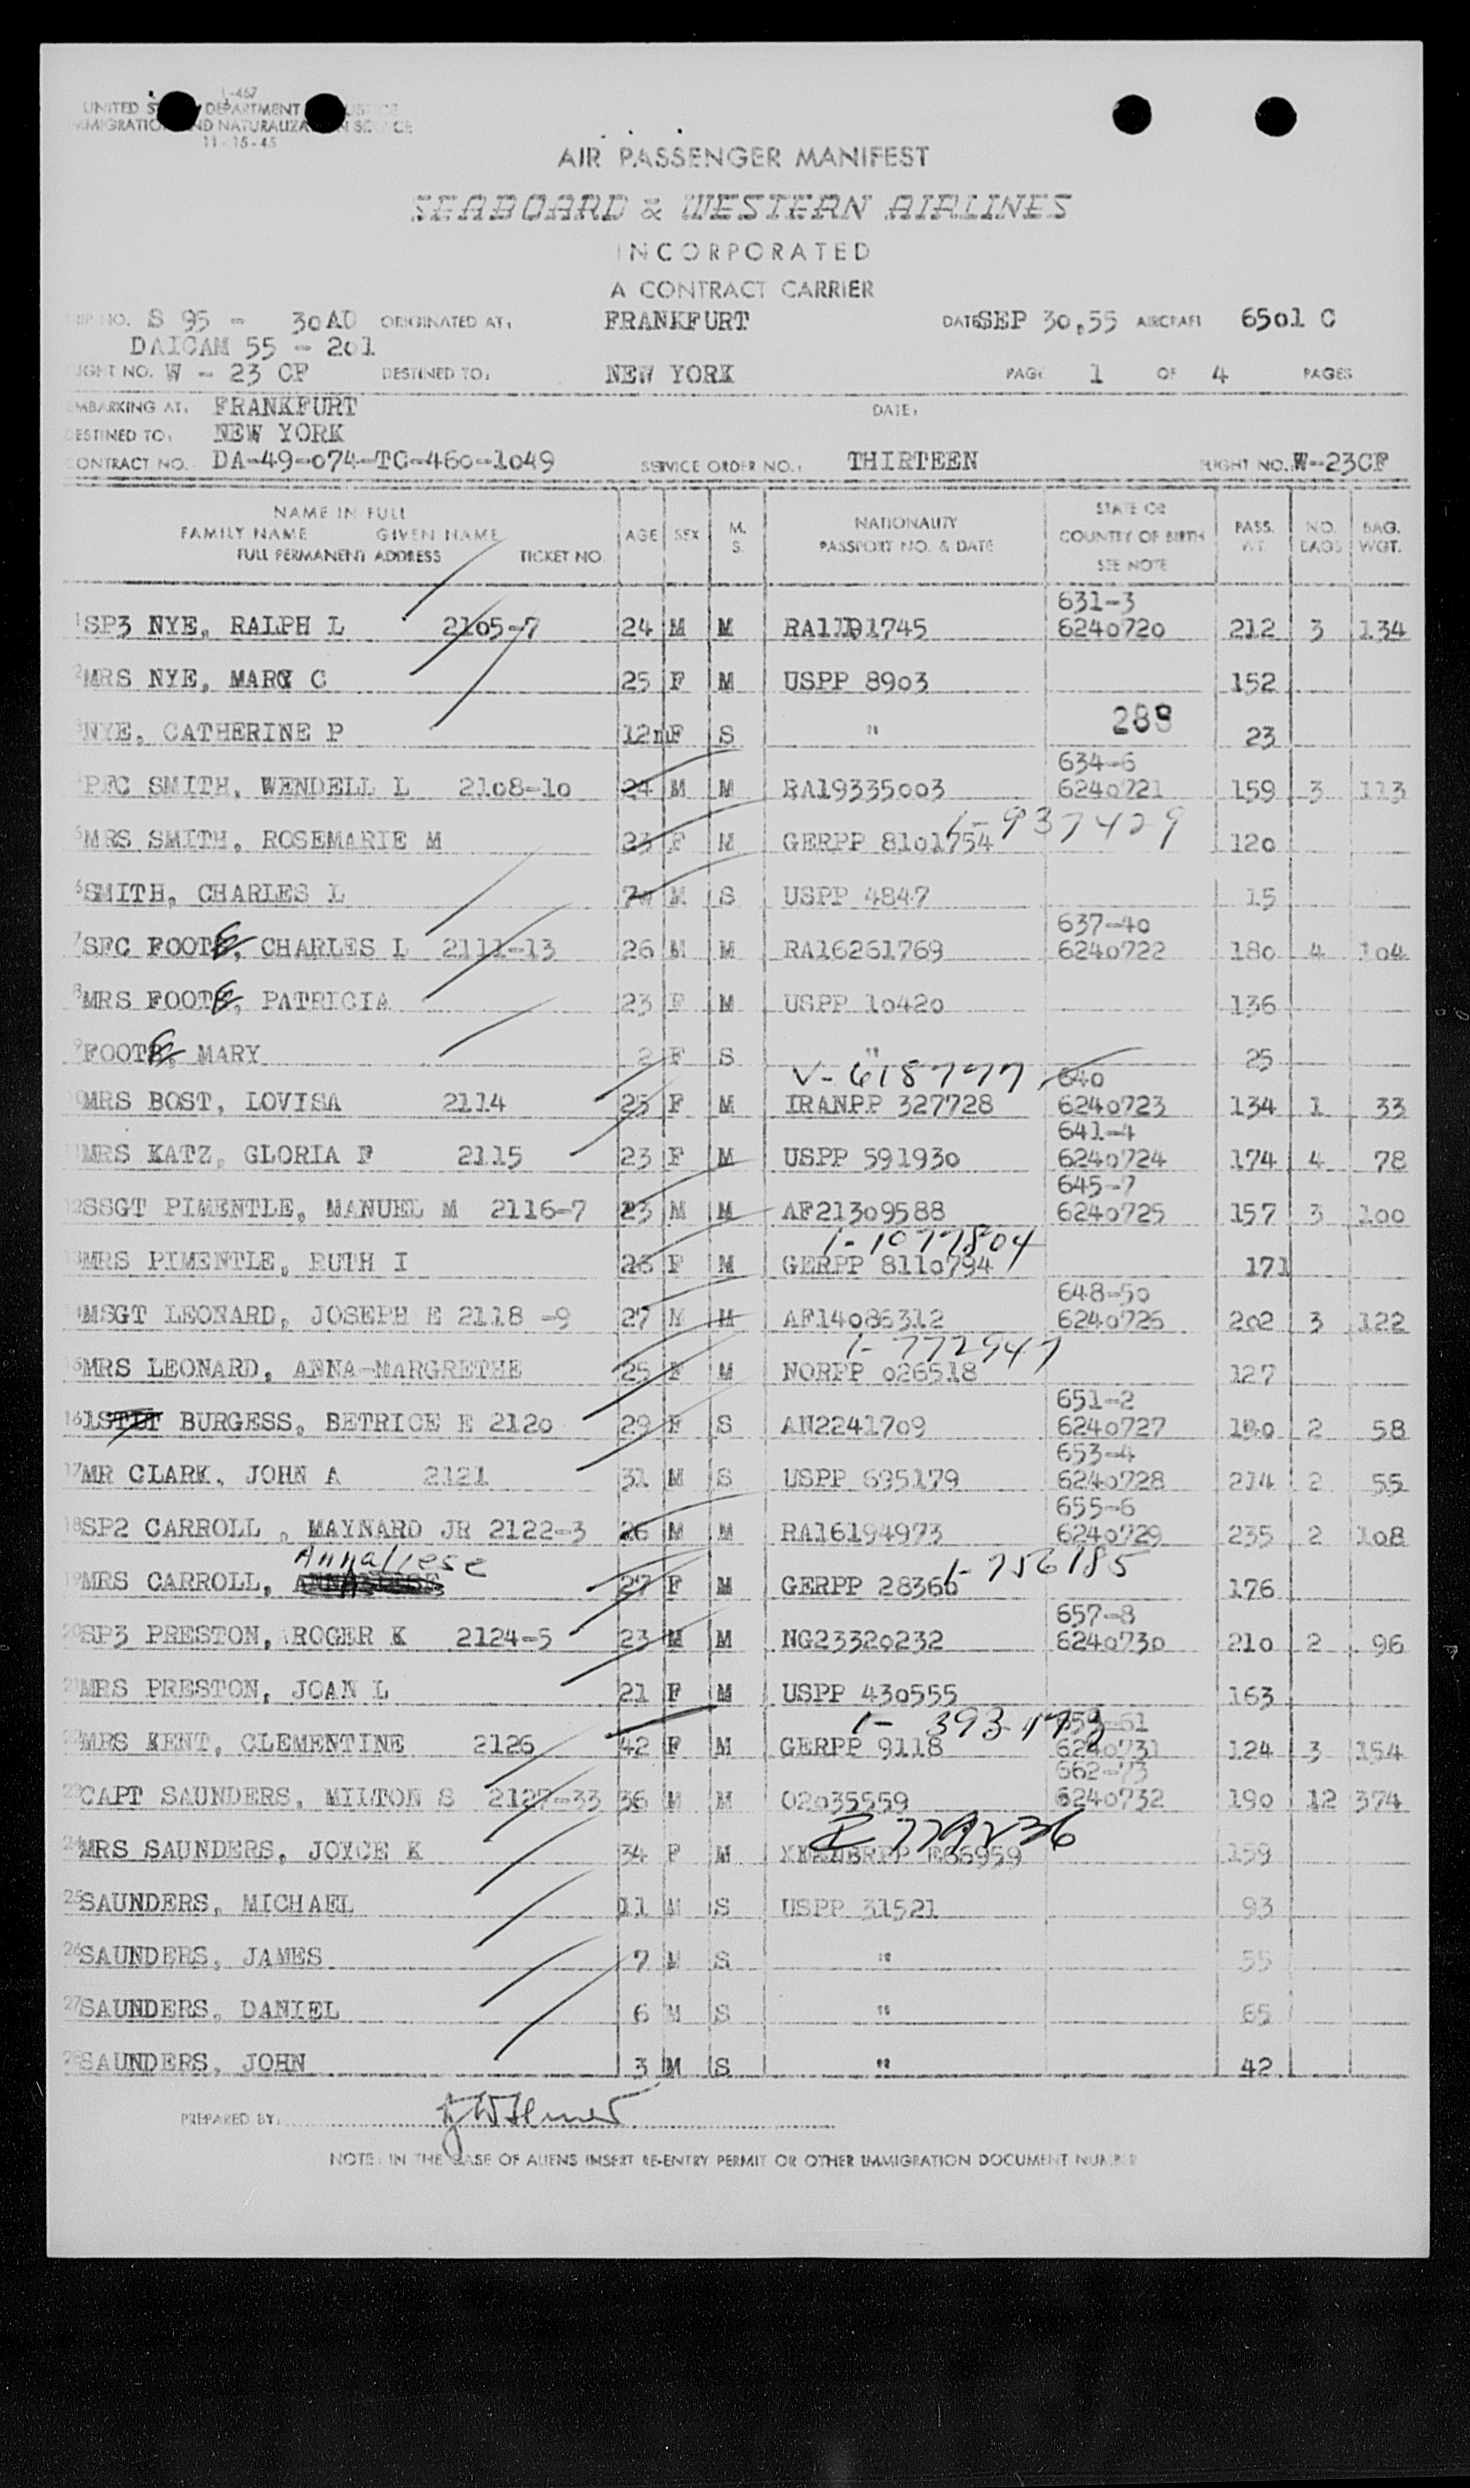 I-467
UNITED STATES DEPARTMENT OF JUSTICE
IMMIGRATION AND NATURALIZATION SERVICE
11-15-45
AIR PASSENGER MANIFEST
SEABOARD & WESTERN AIRLINES
INCORPORATED
A CONTRACT CARRIER
TRIP NO. S 95 - 30AD ORIGINATED AT: FRANKFURT DATE SEP 30,55 AIRCRAFT 6501 C
DAICAM 55 - 201
FLIGHT NO. W - 23 CF DESTINED TO: NEW YORK PAGE 1 OF 4 PAGES
EMBARKING AT: FRANKFURT DATE:
DESTINED TO: NEW YORK
CONTRACT NO. DA-49-074-TC-460-1049 SERVICE ORDER NO.: THIRTEEN FLIGHT NO. W-23CF
NAME IN FULL
FAMILY NAME GIVEN NAME
FULL PERMANENT ADDRESS TICKET NO. AGE SEX M. S. NATIONALITY PASSPORT NO. & DATE STATE OR COUNTRY OF BIRTH SEE NOTE PASS. WT. NO. BAGS BAG. WGT.
631-3
1 SP3 NYE, RALPH L 2105-7 24 M M 6240720 212 3 134
2 MRS NYE, MARY C 25 F M USPP 8903 152
3 NYE, CATHERINE P 12m F S " 288 23
634-6
4 PFC SMITH, WENDELL L 2108-10 24 M M RA19335003 6240721 159 3 113
1-937429
5 MRS SMITH, ROSEMARIE M 23 F M GERPP 8101754 120
6 SMITH, CHARLES L M S USPP 4847 15
637-40
7 SFC FOOTE, CHARLES L 2111-13 26 M M RA16261769 6240722 180 4 104
8 MRS FOOTE, PATRICIA 23 F M USPP 10420 136
9 FOOTE, MARY 2 F S " 25
V-618777 640
10 MRS BOST, LOVISA 2114 23 F M IRANPP 327728 6240723 134 1 33
641-4
11 MRS KATZ, GLORIA F 2115 23 F M USPP 591930 6240724 174 4 78
645-7
12 SSGT PIMENTLE, MANUEL M 2116-7 23 M M AF21309588 6240725 157 3 100
1-1077804
13 MRS PIMENTLE, RUTH I 26 F M GERPP 8110794 171
648-50
14 MSGT LEONARD, JOSEPH E 2118 -9 27 M M AF14086312 6240726 202 3 122
1-772947
15 MRS LEONARD, ANNA-MARGRETHE 25 F M NORPP 026518 127
651-2
16 1STLT BURGESS, BETRICE E 2120 29 F S AN2241709 6240727 2 58
653-4
17 MR CLARK, JOHN A 2121 31 M S USPP 695179 6240728 214 2 55
655-6
18 SP2 CARROLL , MAYNARD JR 2122-3 26 M M RA16194973 6240729 235 2 108
Annaliese 1-756185
19 MRS CARROLL, 27 F M GERPP 28366 176
657-8
20 SP3 PRESTON, ROGER K 2124-5 23 M M NG23320232 6240730 210 2 96
21 MRS PRESTON, JOAN L 21 F M USPP 430555 163
1- 393473 659-61
22 MRS KENT, CLEMENTINE 2126 42 F M GERPP 9118 6240731 124 3 154
662-73
23 CAPT SAUNDERS, MILTON S 2127-33 36 M M O2035559 6240732 190 12 374
24 MRS SAUNDERS, JOYCE K 34 F M E66959 159
25 SAUNDERS, MICHAEL 11 M S USPP 31521 93
26 SAUNDERS, JAMES 7 M S " 55
27 SAUNDERS, DANIEL 6 M S " 65
28 SAUNDERS, JOHN 3 M S " 42
PREPARED BY:
NOTE: IN THE CASE OF ALIENS INSERT RE-ENTRY PERMIT OR OTHER IMMIGRATION DOCUMENT NUMBER